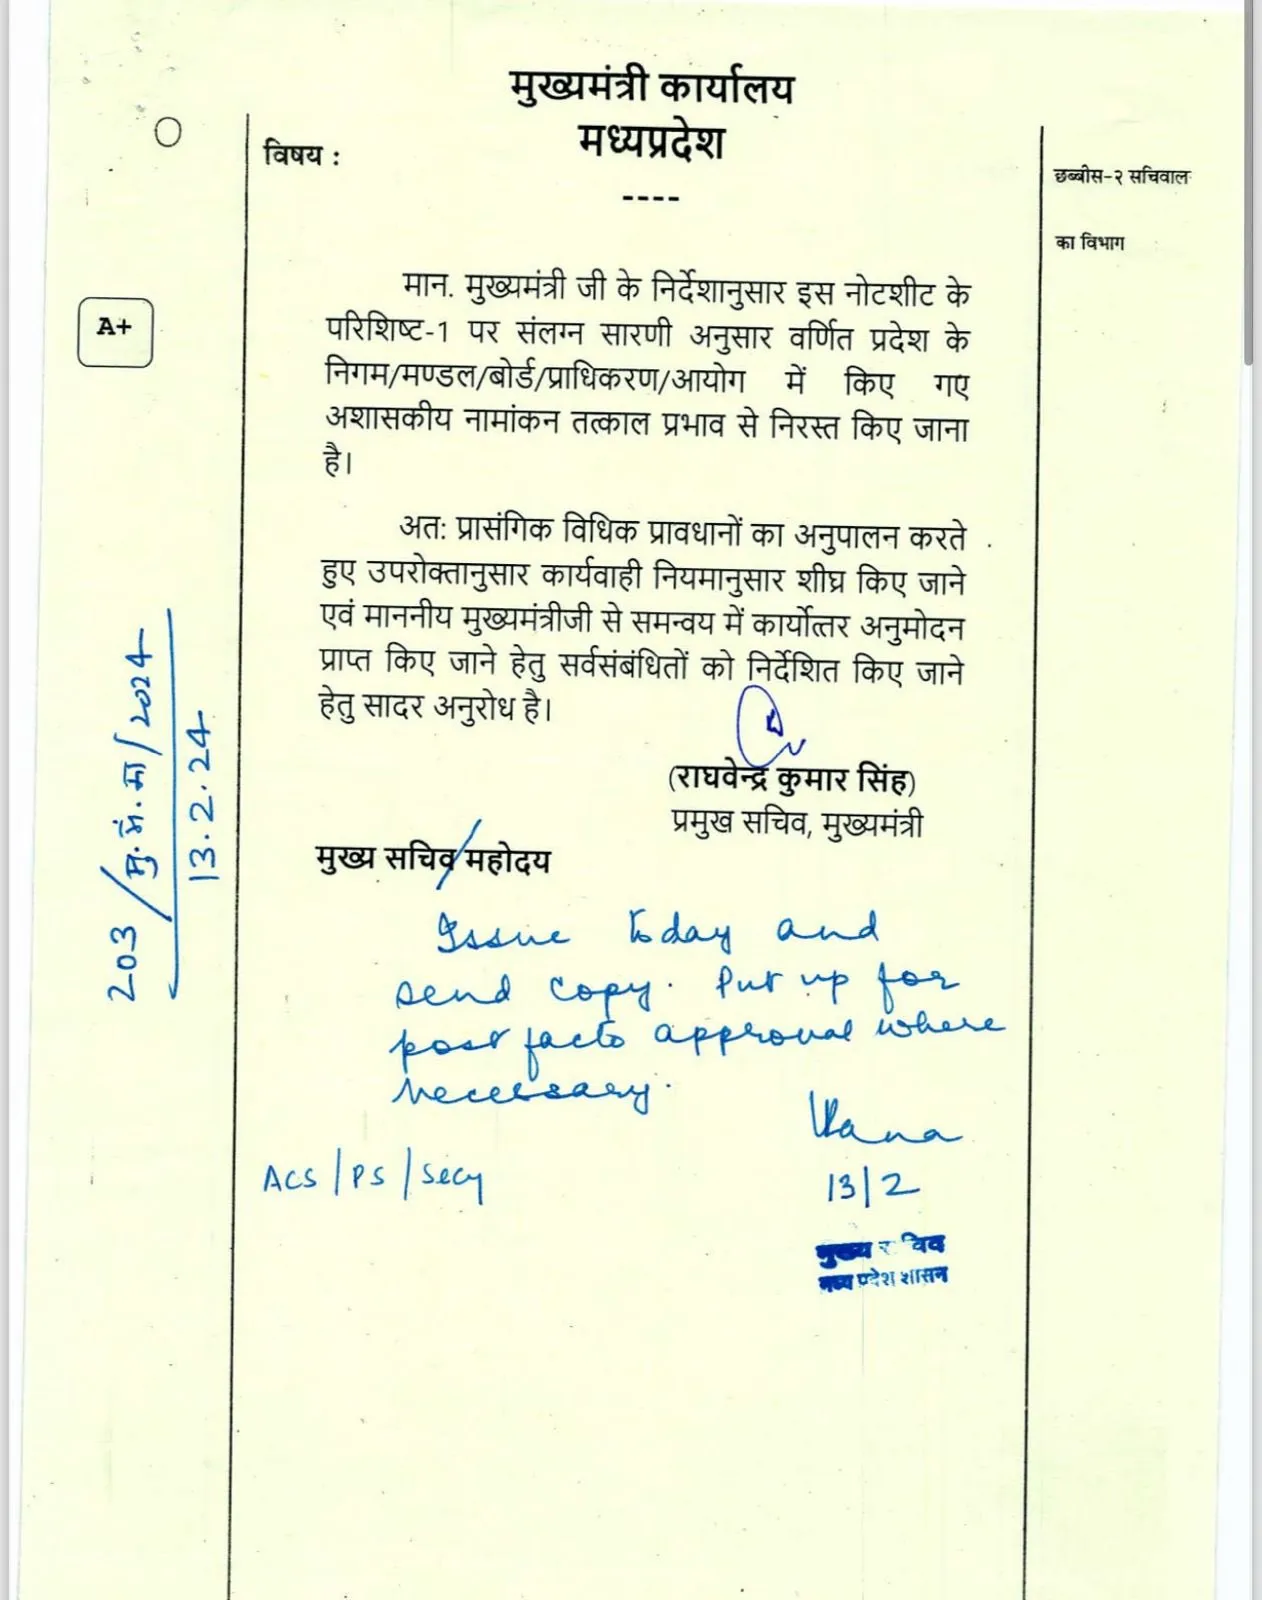 मुख्यमंत्री कार्यालय
मध्यप्रदेश
----
विषय :
छब्बीस-२ सचिवाल
का विभाग
A+
मान. मुख्यमंत्री जी के निर्देशानुसार इस नोटशीट के
परिशिष्ट-1 पर संलग्न सारणी अनुसार वर्णित प्रदेश के
निगम/मण्डल/बोर्ड/प्राधिकरण/आयोग में किए गए
अशासकीय नामांकन तत्काल प्रभाव से निरस्त किए जाना
है।
अत: प्रासंगिक विधिक प्रावधानों का अनुपालन करते
हुए उपरोक्तानुसार कार्यवाही नियमानुसार शीघ्र किए जाने
एवं माननीय मुख्यमंत्रीजी से समन्वय में कार्योत्तर अनुमोदन
प्राप्त किए जाने हेतु सर्वसंबंधितों को निर्देशित किए जाने
हेतु सादर अनुरोध है।
(राघवेन्द्र कुमार सिंह)
प्रमुख सचिव, मुख्यमंत्री
मुख्य सचिव महोदय
203/मु.मं.मा/2024
13.2.24
Issue today and
send copy. Put up for
post facto approval where
necessary.
13/2
ACS/PS/Secy
मुख्य सचिव
मध्य प्रदेश शासन